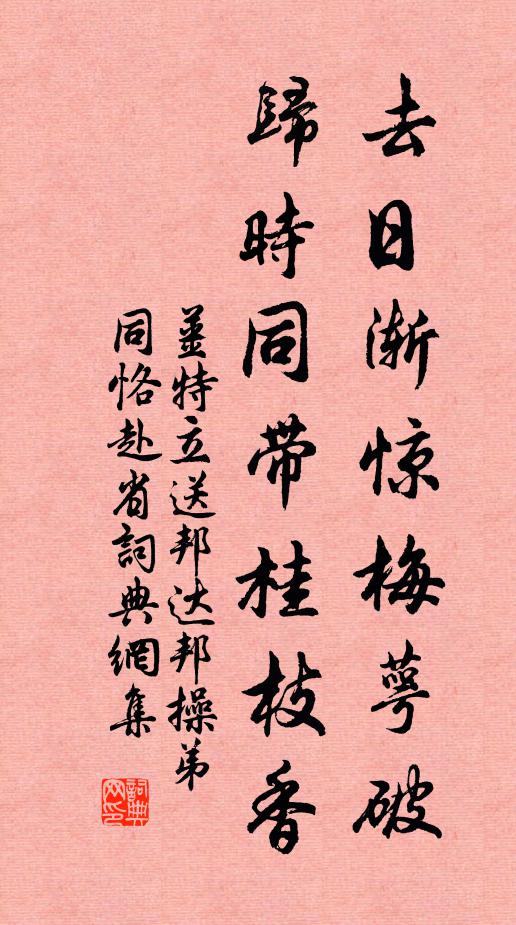 去日渐惊梅萼破
歸時同带桂枝香
姜特立送邦达邦操弟
同恪赴省詞典網集
詞典网印